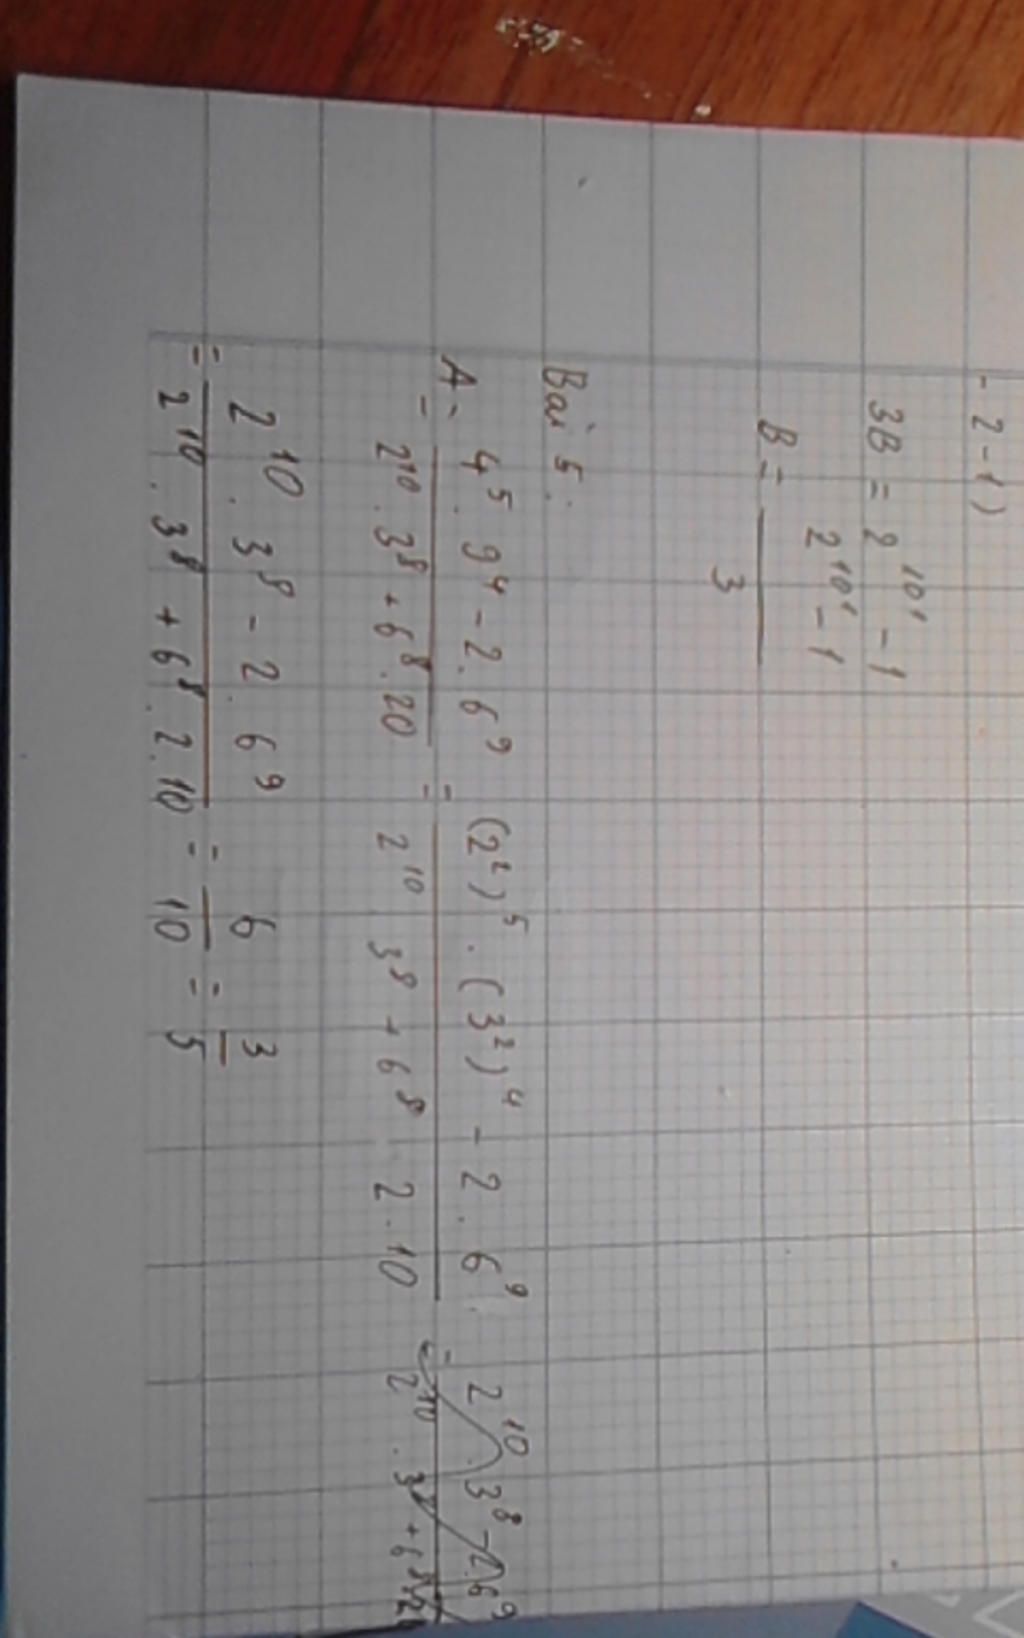 - 2 - 1)
3B = 2^101 - 1
B = (2^101 - 1)/3
Bài 5:
A = (4^5 . 9^4 - 2 . 6^9)/(2^10 . 3^8 + 6^8 . 20) = ((2^2)^5 . (3^2)^4 - 2 . 6^9)/(2^10 3^8 + 6^8 2 . 10)
= (2^10 . 3^8 - 2 . 6^9)/(2^10 . 3^8 + 6^8 . 2 . 10) = 6/10 = 3/5